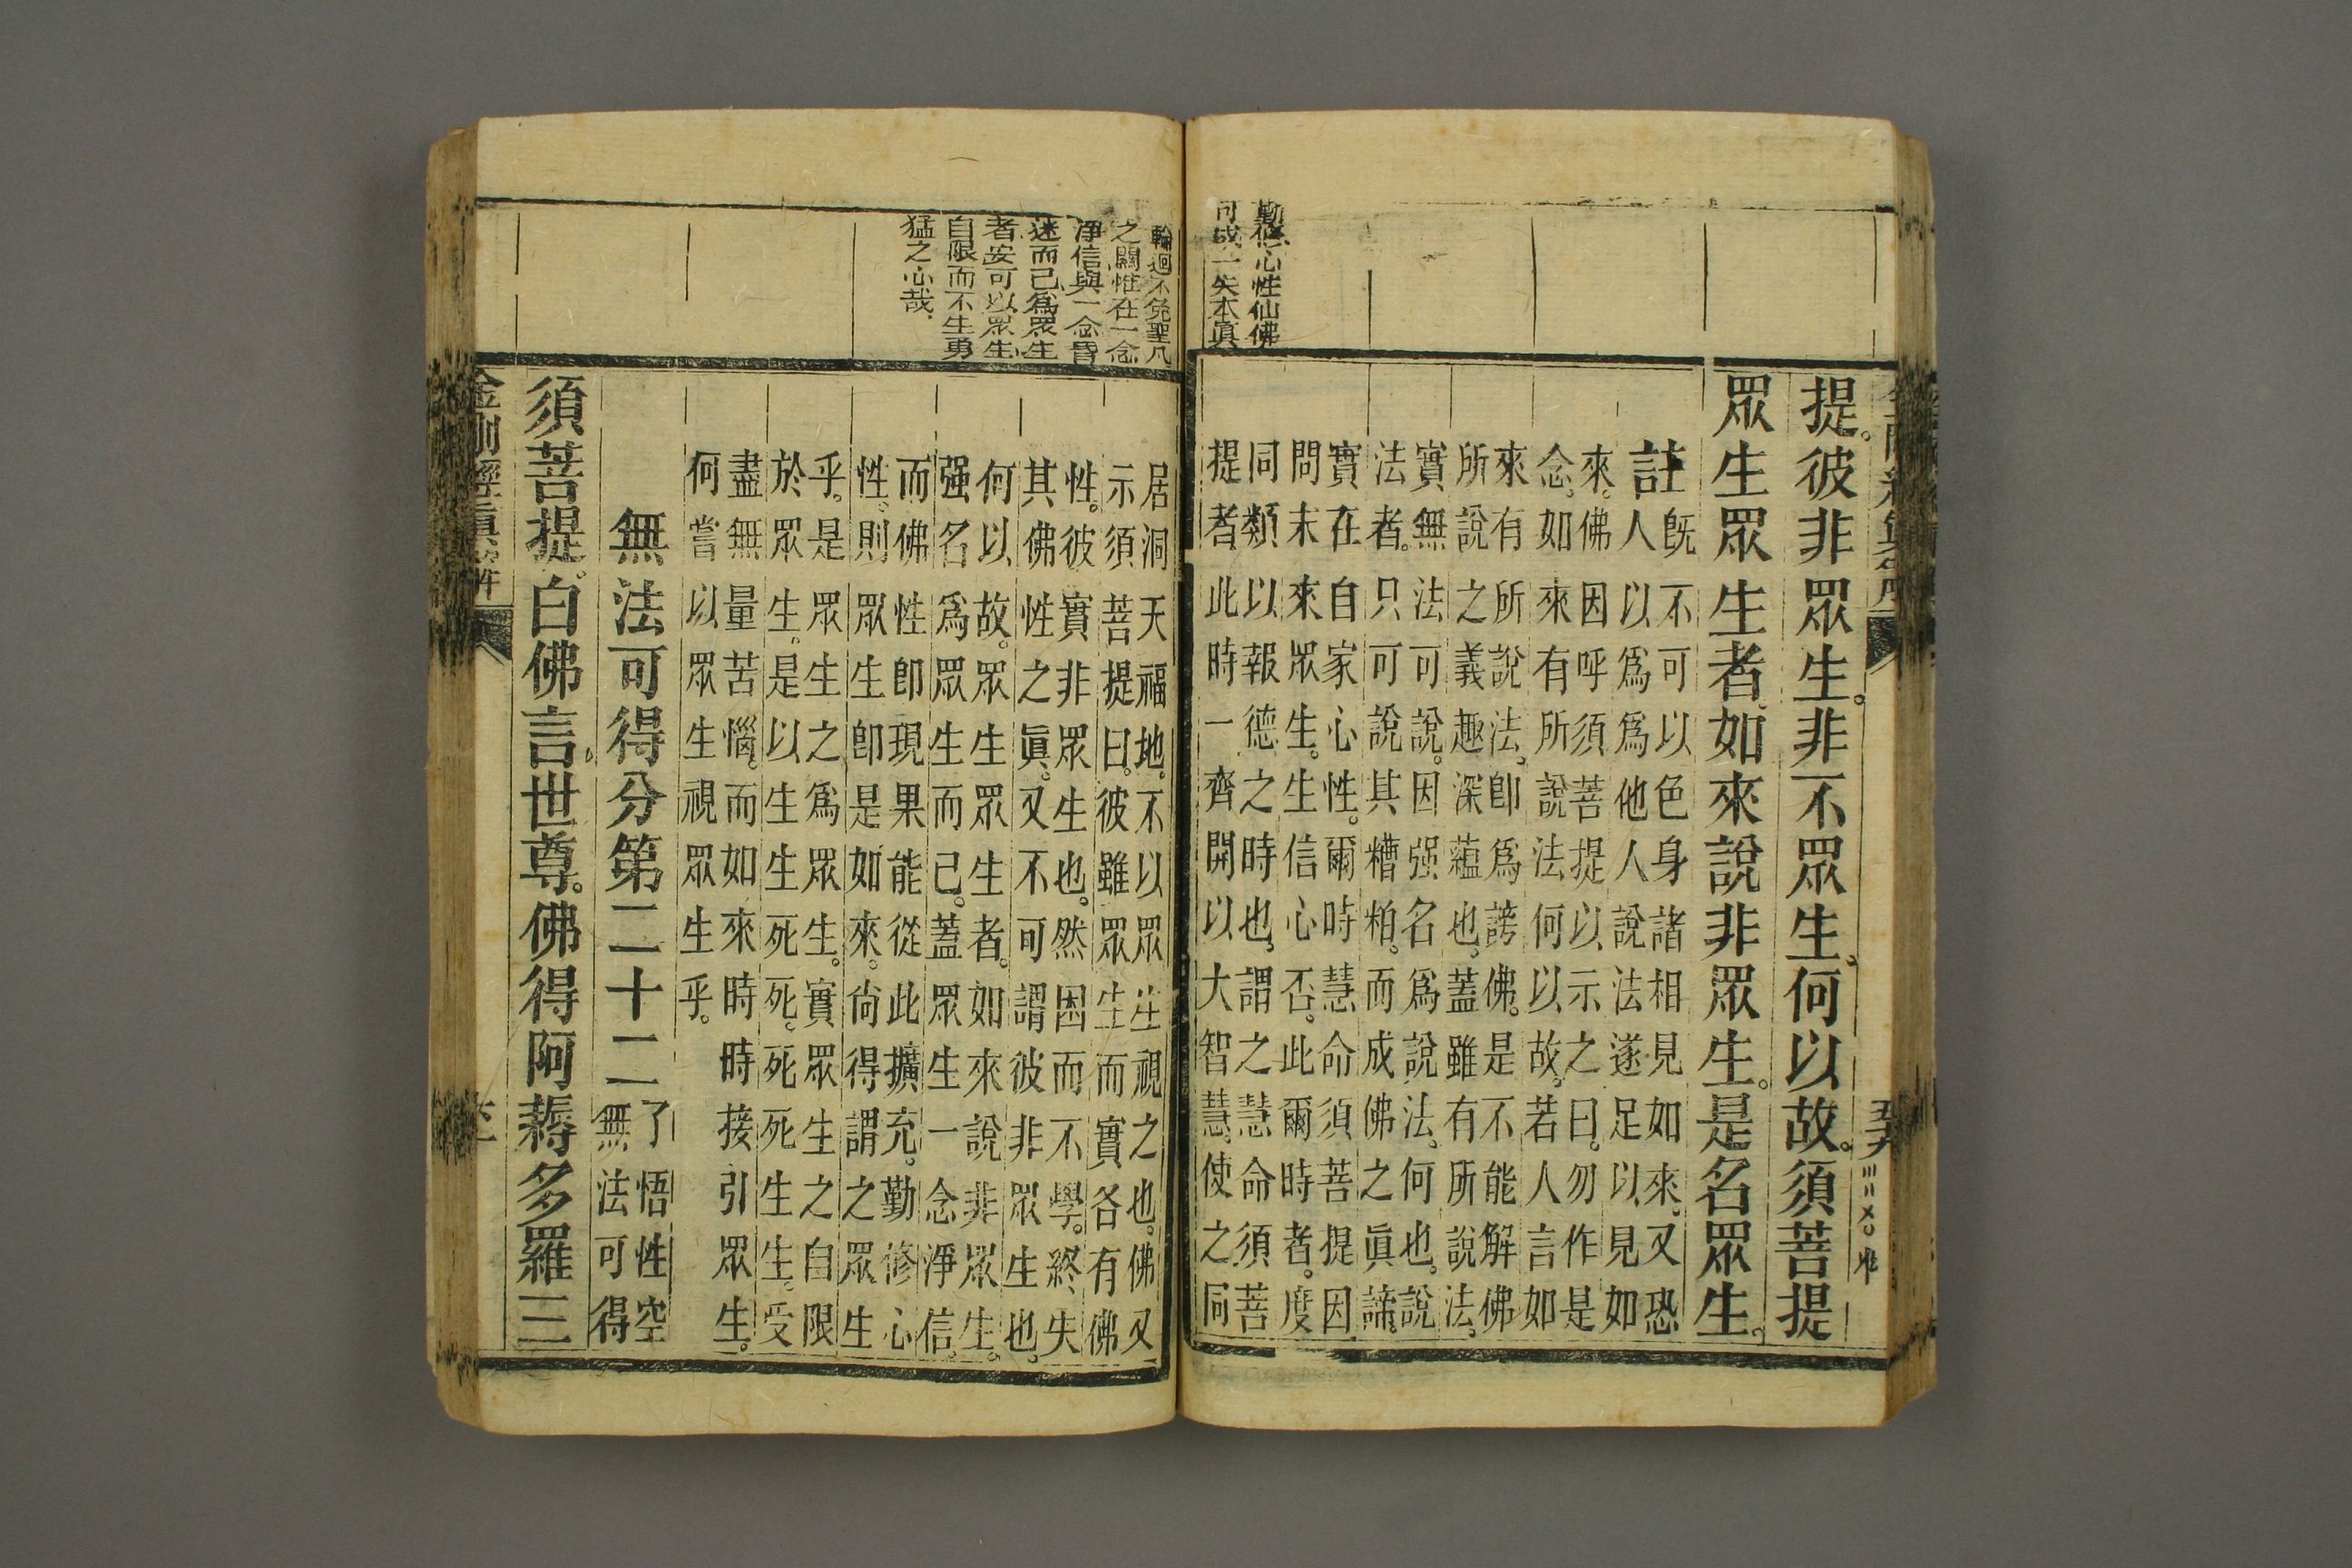 提。彼非眾生。非不眾生。何以故。須菩提
眾生眾生者。如來說非眾生。是名眾生。
註
既不可以色身諸相見如來。又恐
人以為為他人說法遂足以見如
來。佛因呼須菩提以示之曰。勿作是
念。如來有所說法何以故。若人言如
來有所說法。卽為謗佛。是不能解佛
所說之義趣深蘊也。蓋雖有所說法。
實無法可說。因强名為說法。何也。說
法者。只可說其糟粕。而成佛之眞諦。
實在自家心性。爾時慧命須菩提因
問末來眾生。生信心否。此爾時者。度
同類以報德之時也。謂之慧命須菩
提者此時一齊開以大智慧。使之同
勤修心性仙佛
可成一失本眞
居洞天福地。不以眾生視之也。佛又
示須菩提曰。彼雖眾生而實各有佛
性。彼實非眾生也。然因而不學。終失
其佛性之眞。又不可謂彼非眾生也。
何以故。眾生眾生者。如來說非眾生。
强名為眾生而已。蓋眾生一念淨信。
而佛性卽現果能從此擴充。勤修心
性。則眾生卽是如來。尙得謂之眾生
乎。是眾生之為眾生。實眾生之自限
於眾生。是以生生死死。死死生生。受
盡無量苦惱。而如來時時接引眾生。
何嘗以眾生視眾生乎。
無法可得分第二十二
了悟性空
無法可得
須菩提。白佛言。世尊。佛得阿耨多羅三
輪迴不免聖凡
之關惟在一念
淨信與一念昏
迷而已為眾生
者安可以眾生
自限而不生勇
猛之心哉。
金剛經眞解